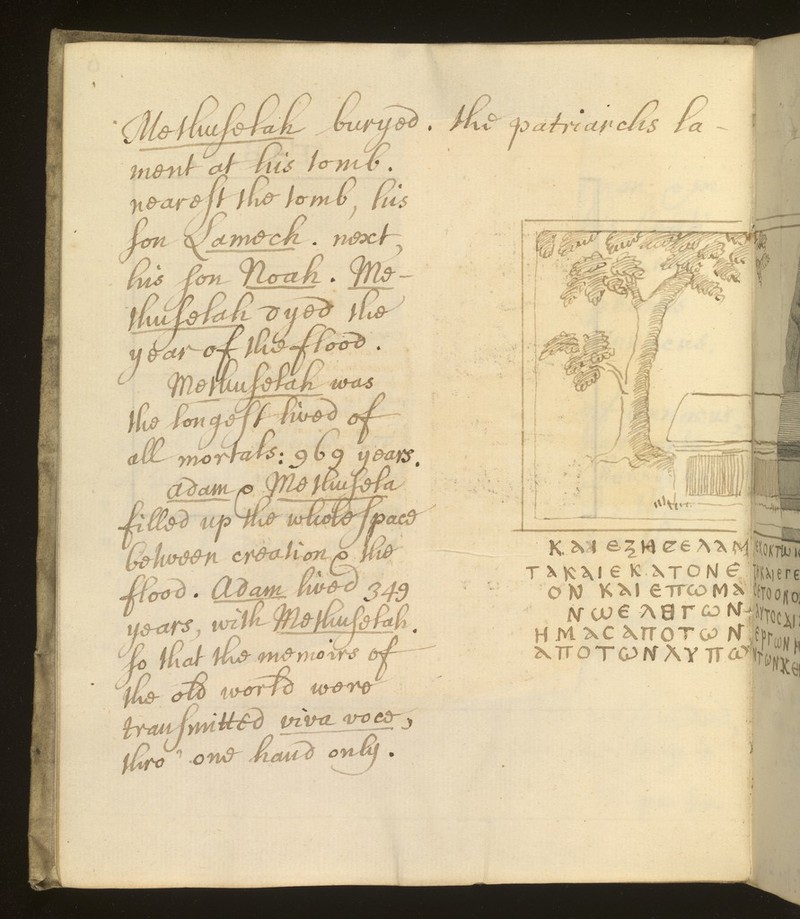 Methuselah buryed. the patriarchs la-
ment at his tomb.
nearest the tomb, his
son Lamech. next,
his son Noah. Me-
thuselah dyed the
year of the flood.
Methuselah was
the longest lived of
all mortals: 969 years.
adam & Methusela
filled up the whole space
between creation & the
flood. Adam lived 349
years, with Methuselah.
so that the memoirs of
the old world were
transmitted viva voce,
thro' one hand only.
ΚΑΙ ΕΖΗϹΕΛΑΜ
ΤΑΚΑΙΕΚΑΤΟΝΕ
ΟΝ ΚΑΙ ΕΠΩΜΑ
ΝΩΕΛΕΓΩΝ
ΗΜΑϹΑΠΟΤΩΝ
ΑΠΟΤΩΝΛΥΠΩ